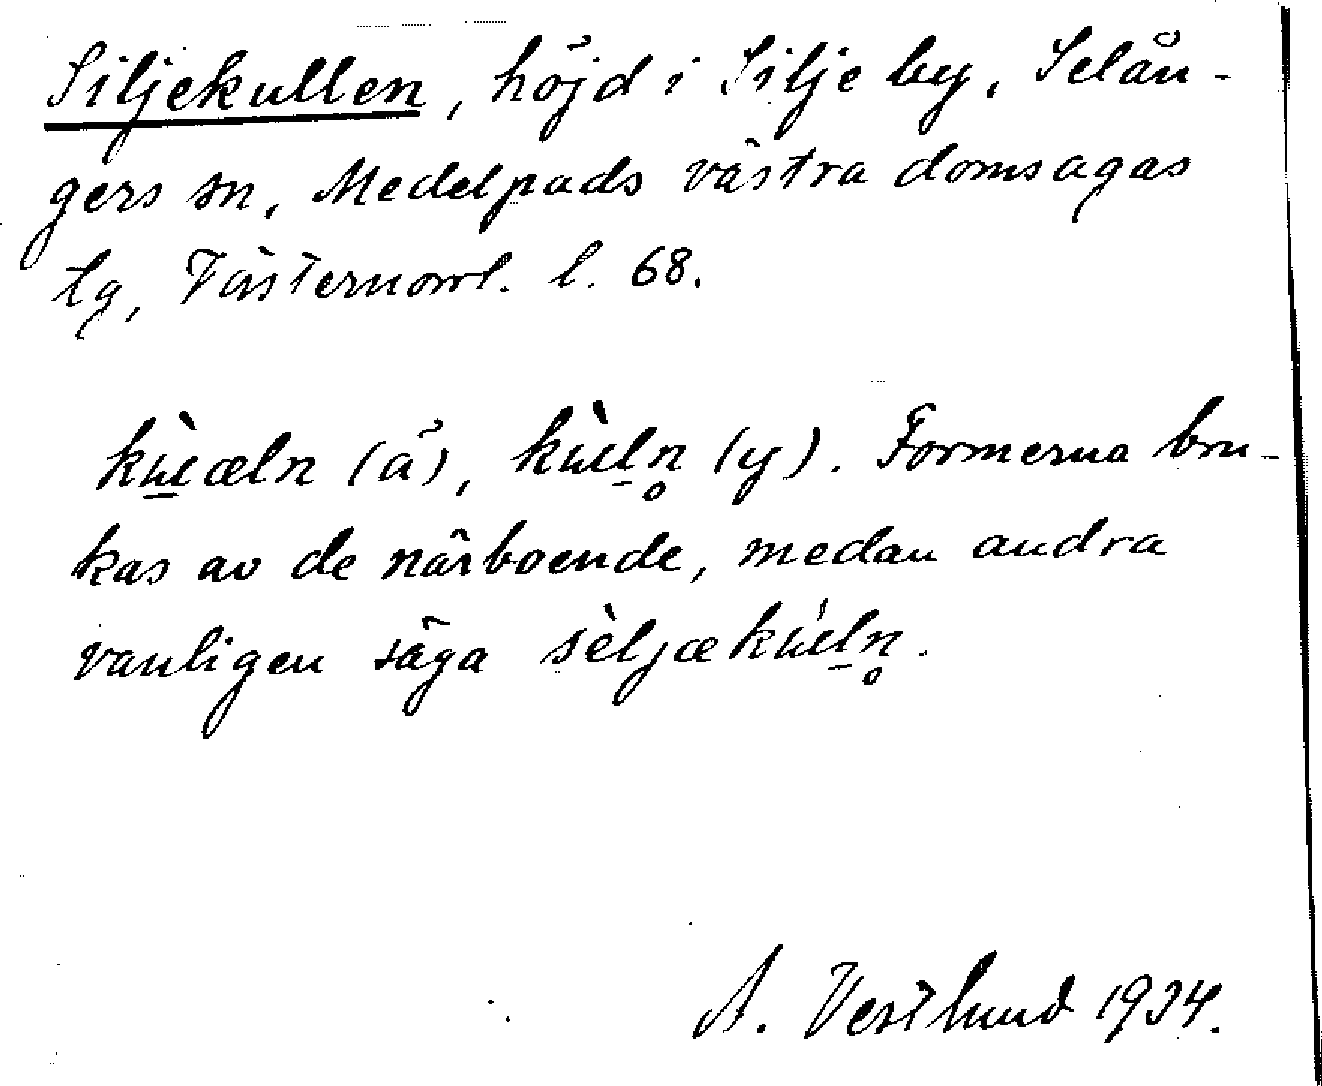 Siljekullen, höjd i Silje by, Selån-
gers sn, Medelpads västra domsagas
tg, Västernorrl. l. 68.
kùu̲æln (ä), kùul̲n̥ (y). Formerna bru-
kas av de närboende, medan andra
vanligen säga sèljækùul̲n̥.
A. Vestlund 1934.